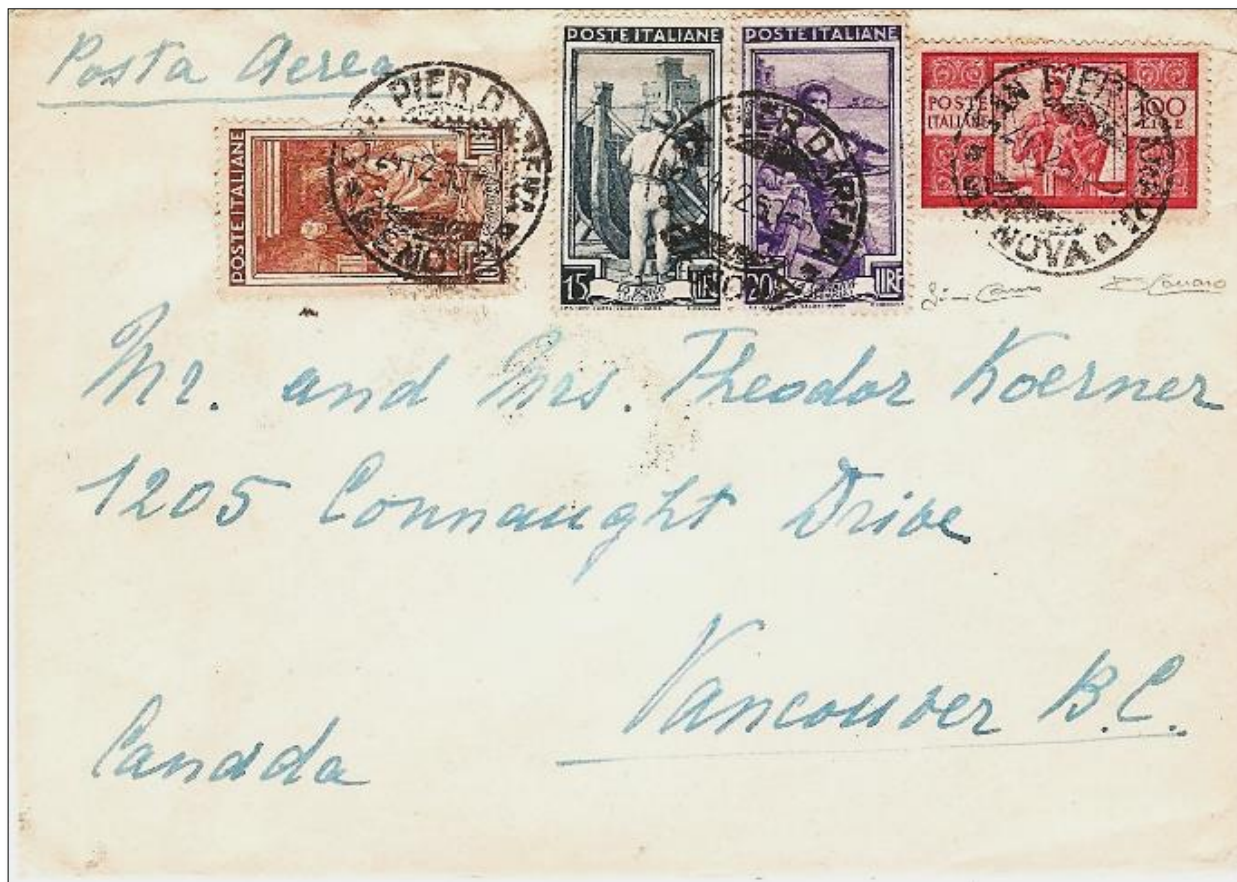 Posta Aerea
POSTE ITALIANE
POSTE ITALIANE
15 LIRE
POSTE ITALIANE
20 LIRE
POSTE
ITALIANE
100
LIRE
SAN PIER D'ARENA
GENOVA
Mr. and Mrs. Theodor Koerner
1205 Connaught Drive
Vancouver B.C.
Canada